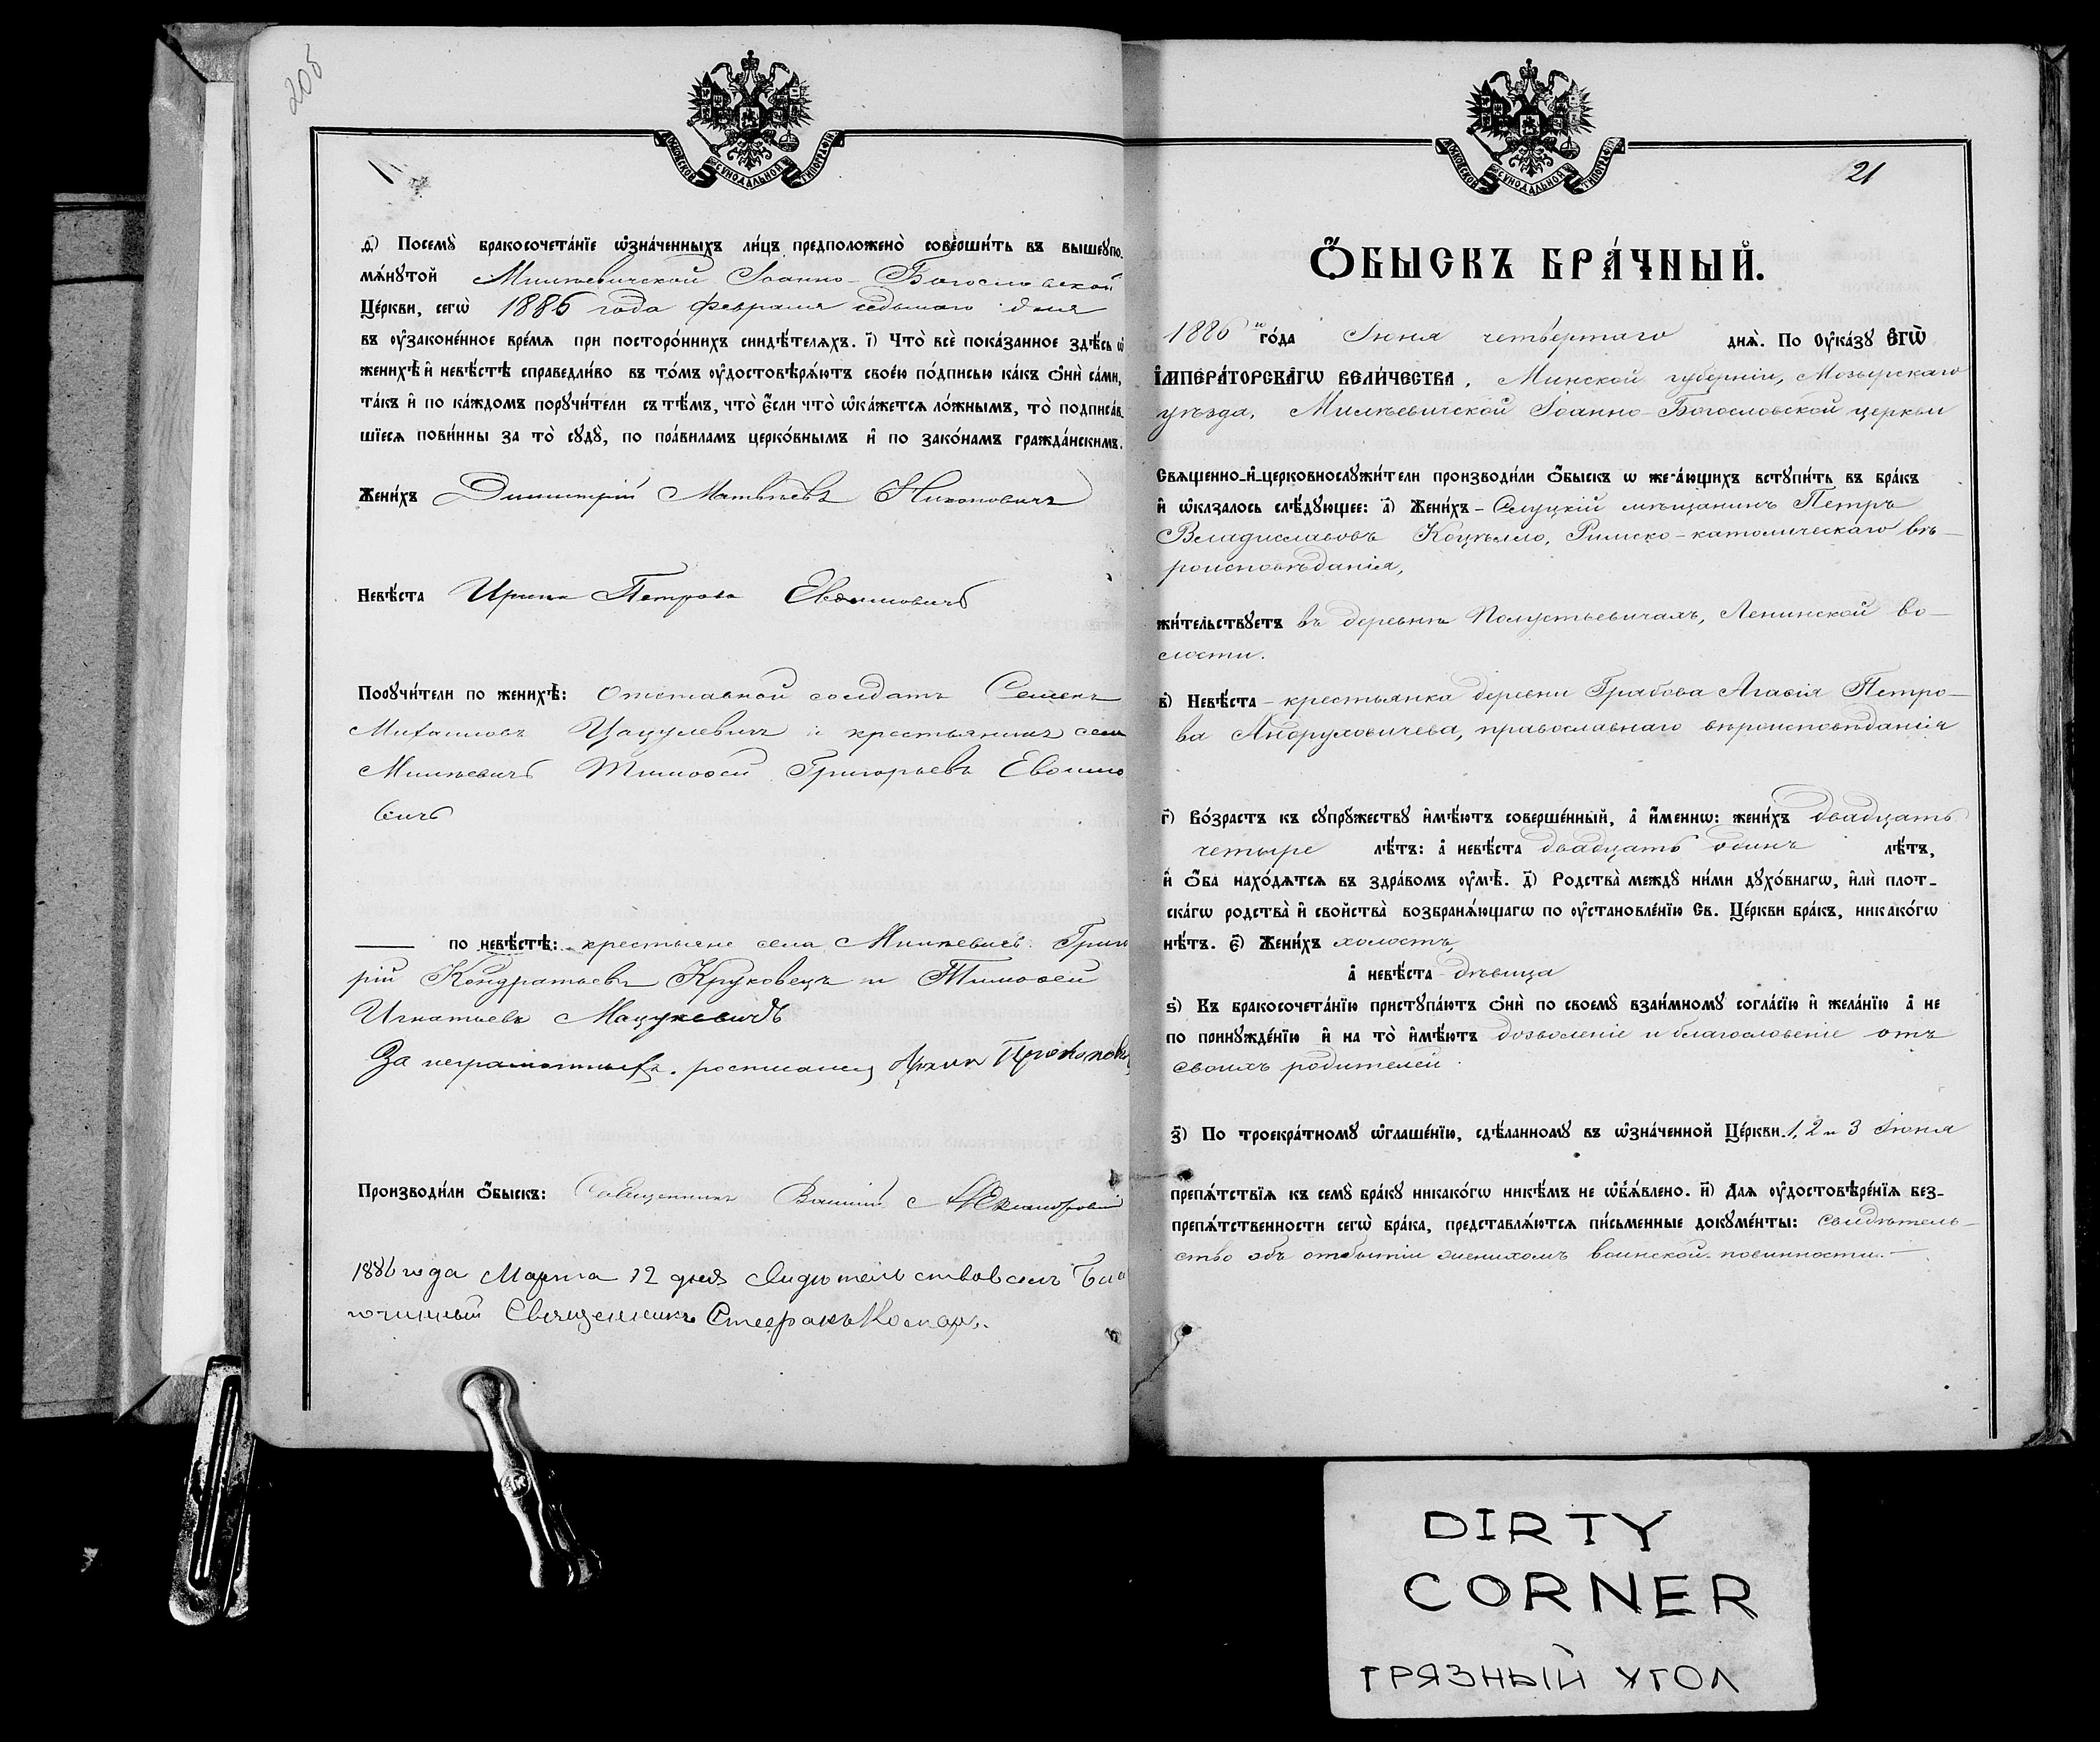 205
МОСКОВСКОЙ СУНОДАЛЬНОЙ ТИПОГРАФІИ
д҃) Посемꙋ̀ бракосочета́нїе ѡ҆зна́ченныхъ ли́цъ предположено̀ соверши́ть въ вышеꙋпо-
мѧ́нꙋтой Милѣвичской Іоанно-Богословской
Це́ркви, сегѡ̀ 1886 года февраля седьмаго дня
въ ᲂу҆законе́нное вре́мѧ при посторо́ннихъ свидѣ́телѧхъ. і҃) Что̀ всѐ пока́занное здѣ́сь ѡ҆
женихѣ̀ и҆ невѣ́стѣ справедли́во въ то́мъ ᲂу҆достовѣрѧ́ютъ свое́ю по́дписью ка́къ ѻ҆нѝ са́ми,
та́къ и҆ по ка́ждомъ порꙋчи́тели съ тѣ́мъ, что̀ є҆́сли что̀ ѡ҆ка́жетсѧ ло́жнымъ, то̀ подписа́в-
шїесѧ пови́нны за то̀ сꙋдꙋ̀, по пра́виламъ церко́внымъ и҆ по зако́намъ гражда́нскимъ.
Жени́хъ Димитрій Матвѣевъ Никоновичъ
Невѣ́ста Ирина Петрова Евдимовичъ
Порꙋчи́тели по женихѣ̀: отставной солдатъ Семенъ
Михаиловъ Цацулевичъ и крестьянинъ села
Милѣевичъ Тимоѳей Григорьевъ Евдимо
вичъ
по невѣ́стѣ: крестьяне села Милѣевичъ Григо
рій Кондратьевъ Круковецъ и Тимоѳей
Игнатьевъ Мацукевичъ
За неграмотныхъ росписался
Производи́ли ѻ҆́быскъ: Священникъ Василій
1886 года Марта 12 дня Свидѣтельствовалъ Благо
чинный Священникъ Стефанъ
МОСКОВСКОЙ СУНОДАЛЬНОЙ ТИПОГРАФІИ
21
Ѻ҆́БЫСКЪ БРА́ЧНЫЙ.
1886 го́да Іюня четвертаго днѧ̀. По Оу҆ка́зꙋ Є҆гѡ̀
І҆МПЕРА́ТОРСКАГѠ ВЕЛИ́ЧЕСТВА, Минской губерніи, Мозырскаго
уѣзда, Милѣевичской Іоанно-Богословской церкви
Свѧщенно-и҆-церковнослꙋжи́тели производи́ли ѻ҆́быскъ ѡ же-а́ющихъ встꙋпи́ть въ бра́къ
и҆ ѡ҆казалось слѣ́дꙋющее: а҃) Жени́хъ - Слуцкій мѣщанинъ Петръ
Владиславовъ Коцѣлло, Римско-католическаго вѣ-
роисповѣданія,
жи́тельствꙋетъ въ деревнѣ Полустьевичахъ, Ленинской во-
лости.
в҃) Невѣ́ста - крестьянка деревни Грабова Агаѳія Петро-
ва Андруховичева, православнаго вѣроисповѣданія
г҃) Во́зрастъ къ сꙋпрꙋжествꙋ и҆мѣ́ютъ соверше́нный, а҆ и҆́меннѡ: жени́хъ двадцать
четыре лѣ́тъ: а҆ невѣ́ста двадцать одинъ лѣ́тъ,
и҆ ѻ҆́ба нахо́дѧтсѧ въ здра́вомъ ᲂу҆мѣ̀. д҃) Родства̀ междꙋ̀ ни́ми дꙋхо́внагѡ, и҆лѝ плот-
ска́гѡ родства̀ и҆ свойства̀ возбранѧ́ющагѡ по ᲂу҆становле́нїю Св. Це́ркви бра́къ, никако́гѡ
нѣ́тъ. є҃) Жени́хъ холостъ,
а҆ невѣ́ста дѣвица
ѕ҃) Къ бракосочета́нїю пристꙋпа́ютъ ѻ҆нѝ по своемꙋ̀ взаи́мномꙋ согла́сїю и҆ жела́нїю а҆ не
по принꙋжде́нїю и҆ на то̀ и҆мѣ́ютъ дозволеніе и благословеніе отъ
своихъ родителей.
з҃) По троекра́тномꙋ ѡ҆глаше́нїю, сдѣ́ланномꙋ въ ѡ҆зна́ченной Це́ркви 1, 2 и 3 Іюня
препѧ́тствїѧ къ семꙋ̀ бра́кꙋ никако́гѡ никѣ́мъ не ѡ҆б̾ѧ́влено. и҃) Длѧ ᲂу҆достовѣре́нїѧ без-
препѧ́тственности сегѡ̀ бра́ка, представлѧ́ютсѧ пи́сьменные докꙋме́нты: свидѣтель-
ство объ отбытіи женихомъ воинской повинности.-
DIRTY
CORNER
ГРЯЗНЫЙ УГОЛ